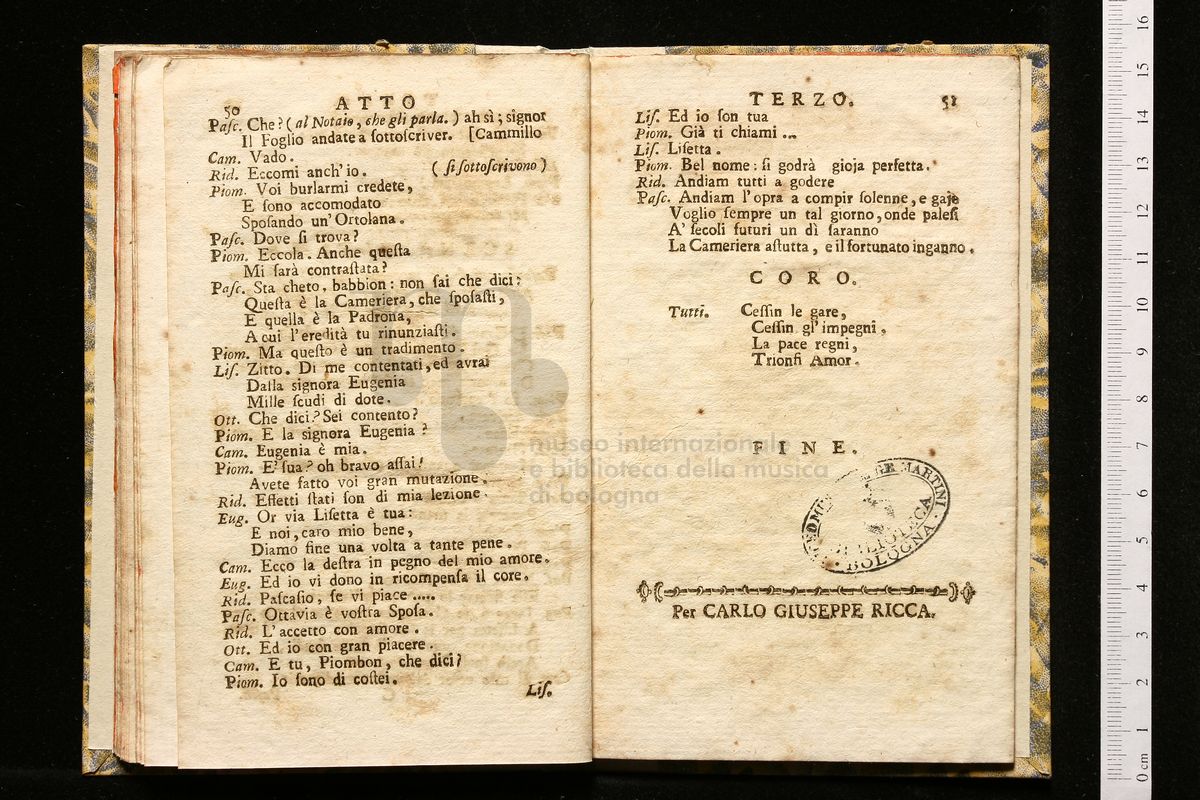 50 ATTO
Paſc. Che? ( al Notaio, che gli parla. ) ah sì; signor
Il Foglio andate a ſottoſcriver. [Cammillo
Cam. Vado.
Rid. Eccomi anch'io. ( ſi ſottoſcrivono )
Piom. Voi burlarmi credete,
E ſono accomodato
Spoſando un'Ortolana.
Paſc. Dove ſi trova?
Piom. Eccola. Anche queſta
Mi ſarà contraſtata?
Paſc. Sta cheto, babbion: non ſai che dici?
Queſta è la Cameriera, che ſpoſaſti,
E quella è la Padrona,
A cui l'eredità tu rinunziaſti.
Piom. Ma queſto è un tradimento.
Liſ. Zitto. Di me contentati, ed avrai
Dalla signora Eugenia
Mille ſcudi di dote.
Ott. Che dici? Sei contento?
Piom. E la signora Eugenia?
Cam. Eugenia è mia.
Piom. E' ſua? oh bravo aſſai!
Avete fatto voi gran mutazione.
Rid. Effetti ſtati ſon di mia lezione.
Eug. Or via Liſetta è tua:
E noi, caro mio bene,
Diamo fine una volta a tante pene.
Cam. Ecco la deſtra in pegno del mio amore.
Eug. Ed io vi dono in ricompenſa il core.
Rid. Paſcaſio, ſe vi piace .....
Paſc. Ottavia è voſtra Spoſa.
Rid. L'accetto con amore.
Ott. Ed io con gran piacere.
Cam. E tu, Piombon, che dici?
Piom. Io ſono di coſtei.
Liſ.
TERZO. 51
Liſ. Ed io ſon tua
Piom. Già ti chiami ...
Liſ. Liſetta.
Piom. Bel nome: ſi godrà gioja perfetta.
Rid. Andiam tutti a godere
Paſc. Andiam l'opra a compir ſolenne, e gaje
Voglio ſempre un tal giorno, onde paleſi
A' ſecoli futuri un dì ſaranno
La Cameriera aſtutta, e il fortunato inganno.
CORO.
Tutti. Ceſſin le gare,
Ceſſin gl'impegni,
La pace regni,
Trionfi Amor.
FINE.
MARTINI
BIBLIOTECA
BOLOGNA
Per CARLO GIUSEPPE RICCA.
museo internazionale
e biblioteca della musica
di bologna
0 cm 1 2 3 4 5 6 7 8 9 10 11 12 13 14 15 16